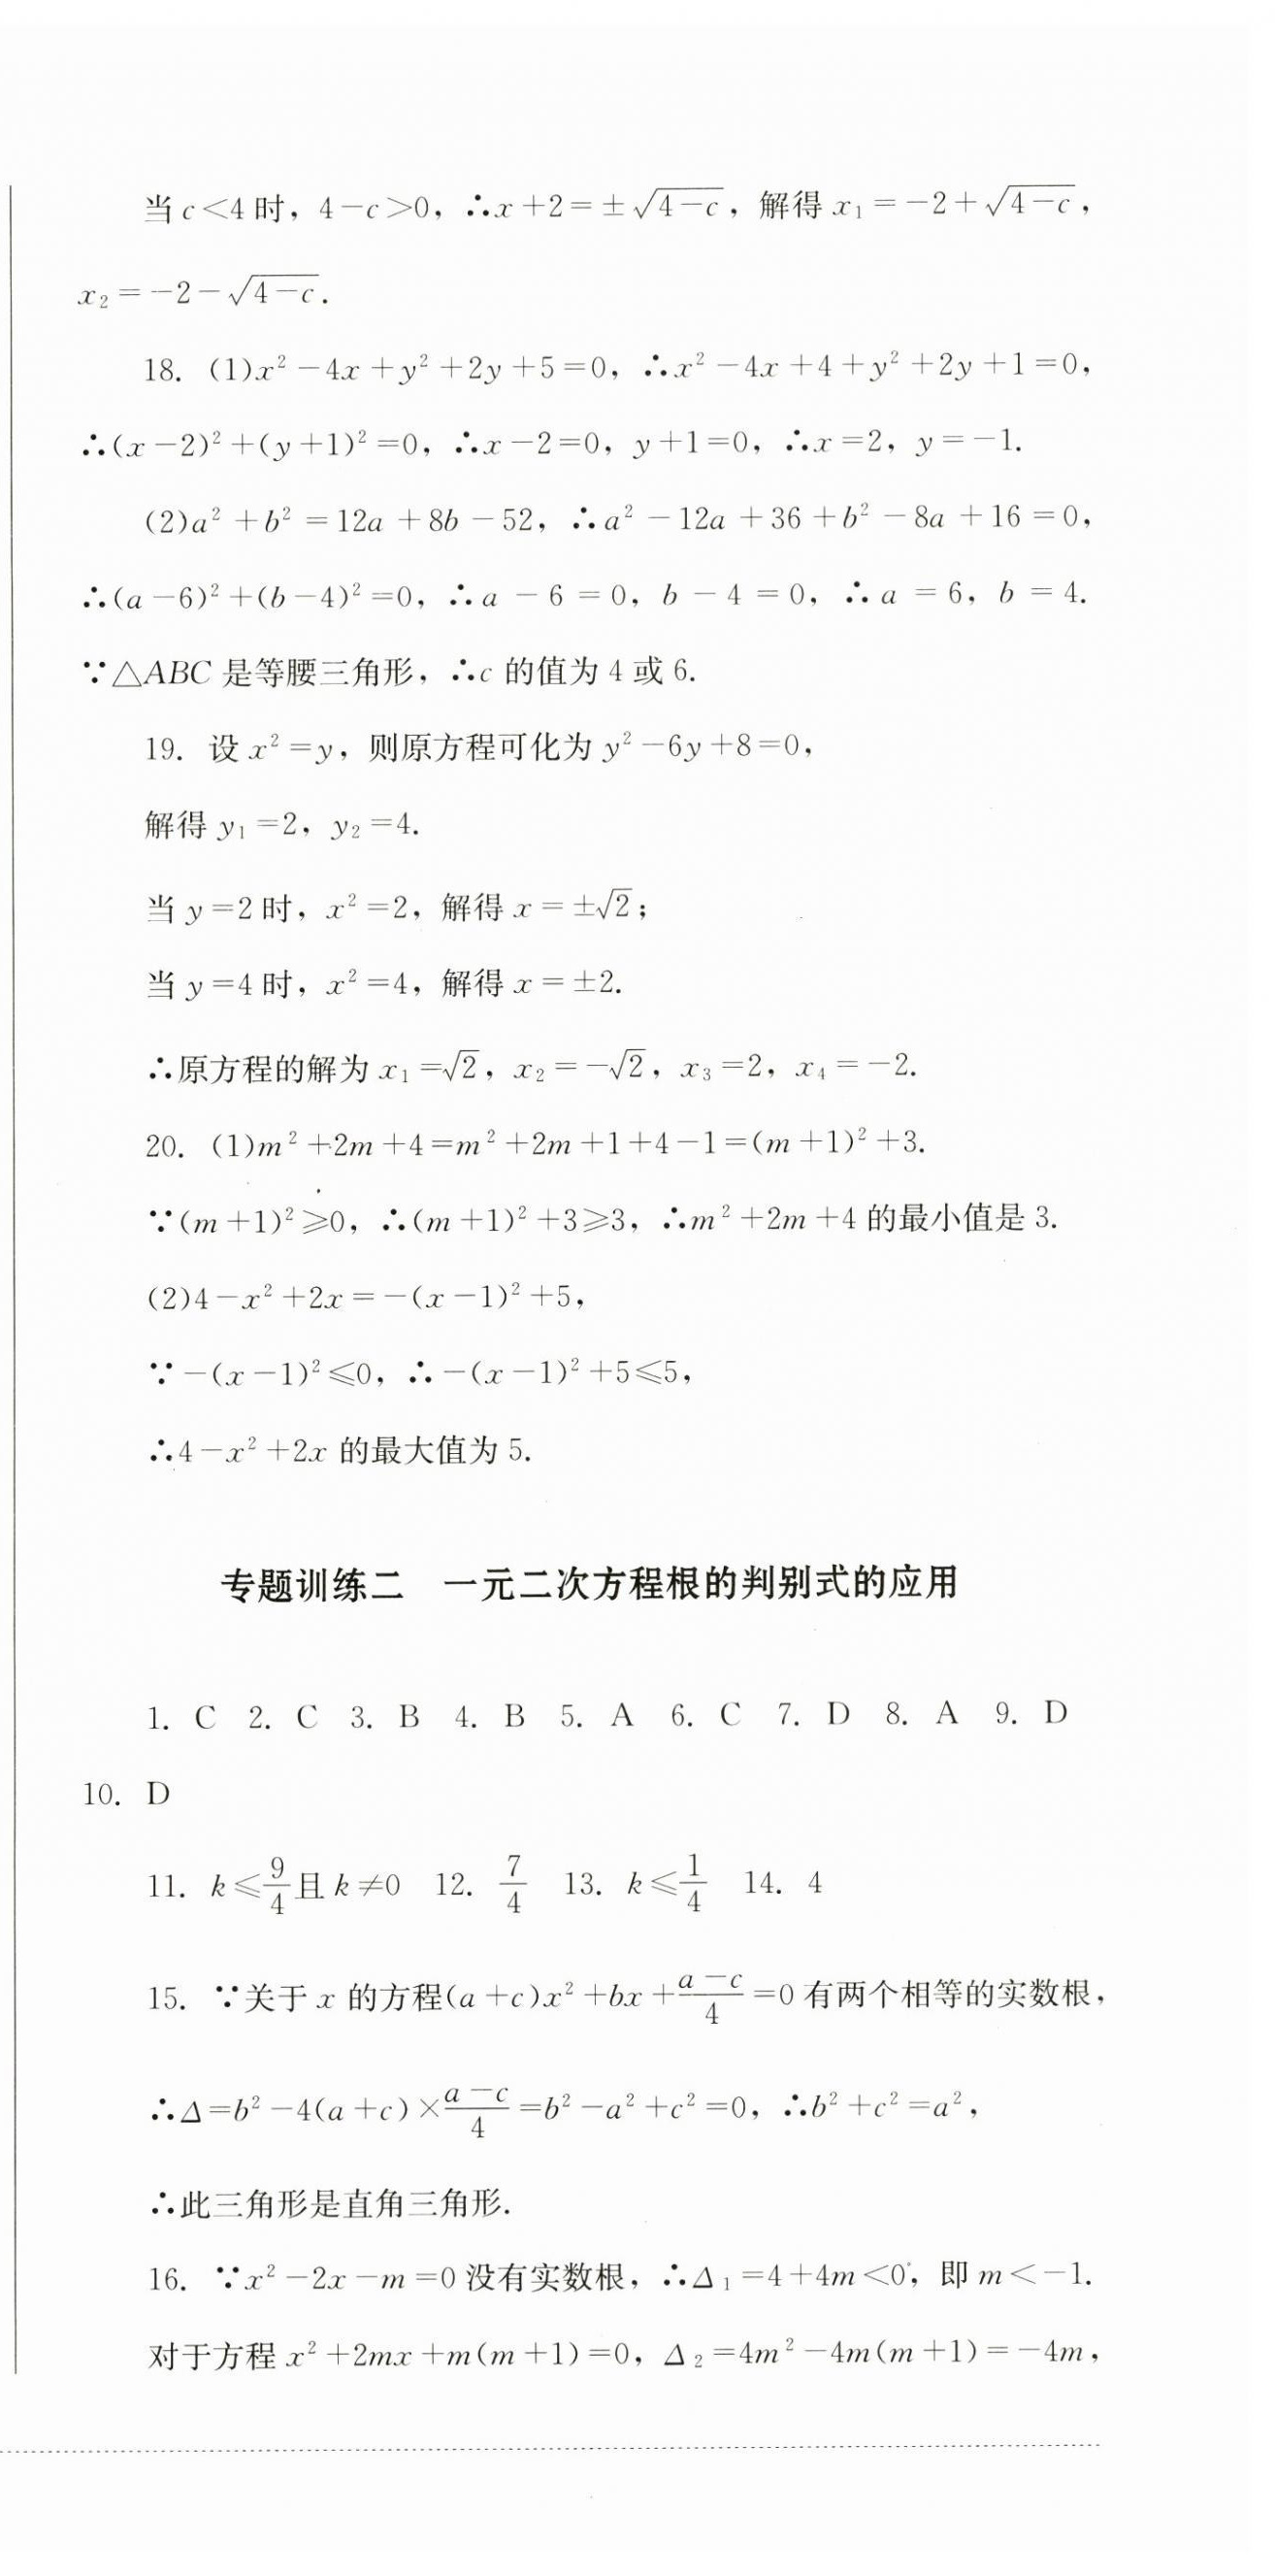 当 c<4 时，4-c>0，∴x+2=±√(4-c)，解得 x₁=-2+√(4-c)，
x₂=-2-√(4-c).
18. (1)x²-4x+y²+2y+5=0，∴x²-4x+4+y²+2y+1=0，
∴(x-2)²+(y+1)²=0，∴x-2=0，y+1=0，∴x=2，y=-1.
(2)a²+b²=12a+8b-52，∴a²-12a+36+b²-8a+16=0，
∴(a-6)²+(b-4)²=0，∴a-6=0，b-4=0，∴a=6，b=4.
∵△ABC 是等腰三角形，∴c 的值为 4 或 6.
19. 设 x²=y，则原方程可化为 y²-6y+8=0，
解得 y₁=2，y₂=4.
当 y=2 时，x²=2，解得 x=±√2；
当 y=4 时，x²=4，解得 x=±2.
∴原方程的解为 x₁=√2，x₂=-√2，x₃=2，x₄=-2.
20. (1)m²+2m+4=m²+2m+1+4-1=(m+1)²+3.
∵(m+1)²≥0，∴(m+1)²+3≥3，∴m²+2m+4 的最小值是 3.
(2)4-x²+2x=-(x-1)²+5，
∵-(x-1)²≤0，∴-(x-1)²+5≤5，
∴4-x²+2x 的最大值为 5.
专题训练二　一元二次方程根的判别式的应用
1. C　2. C　3. B　4. B　5. A　6. C　7. D　8. A　9. D
10. D
11. k≤9/4且 k≠0　12. 7/4　13. k≤1/4　14. 4
15. ∵关于 x 的方程(a+c)x²+bx+(a-c)/4=0 有两个相等的实数根，
∴Δ=b²-4(a+c)×(a-c)/4=b²-a²+c²=0，∴b²+c²=a²，
∴此三角形是直角三角形.
16. ∵x²-2x-m=0 没有实数根，∴Δ₁=4+4m<0，即 m<-1.
对于方程 x²+2mx+m(m+1)=0，Δ₂=4m²-4m(m+1)=-4m，